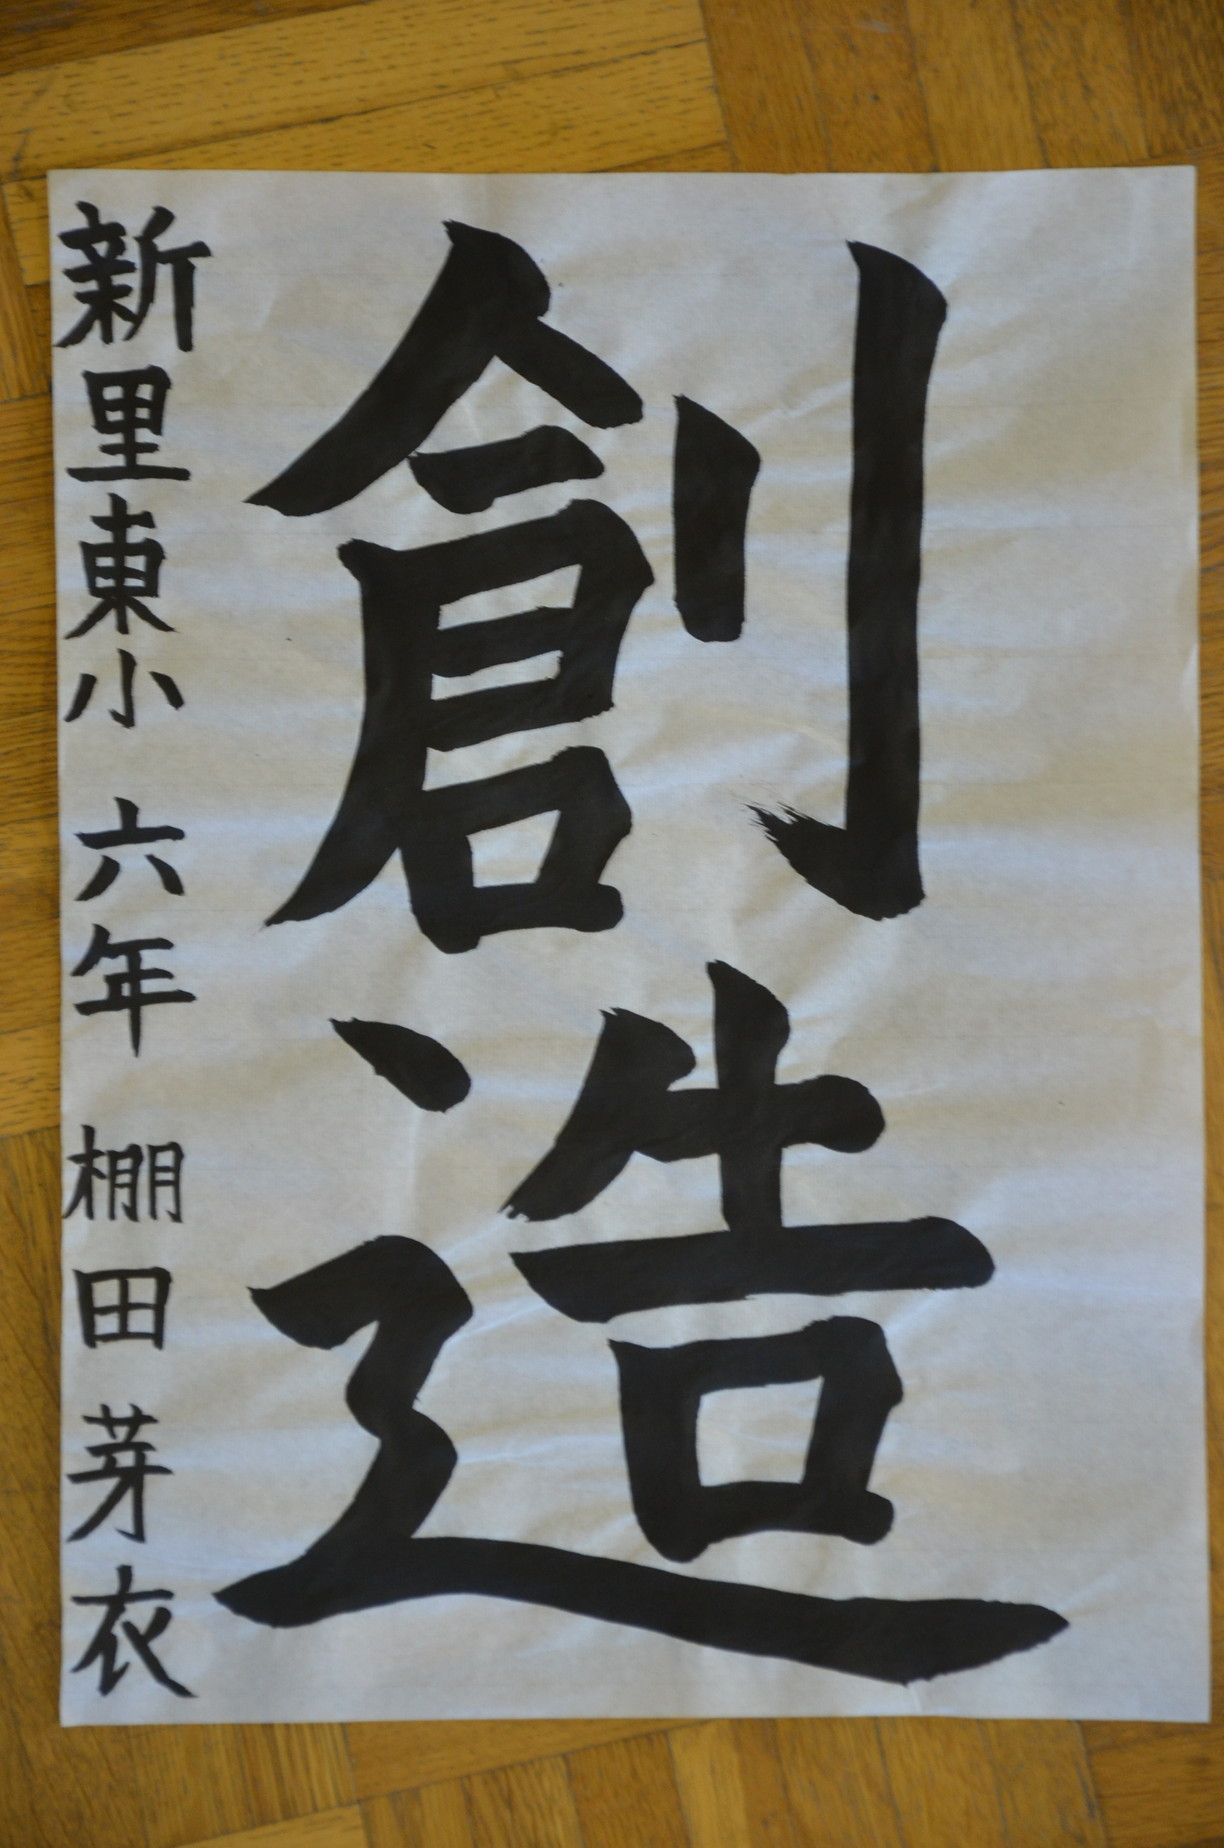 創造
新里東小 六年 棚田芽衣